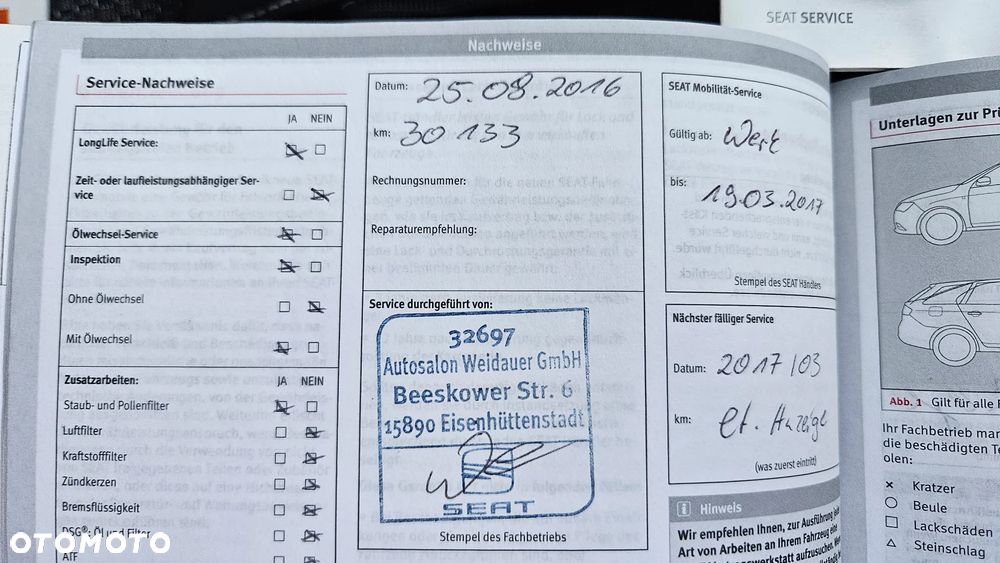 SEAT SERVICE
Nachweise
Service-Nachweise
JA NEIN
LongLife Service:
Zeit- oder laufleistungsabhängiger Ser-
vice
Ölwechsel-Service
Inspektion
Ohne Ölwechsel
Mit Ölwechsel
Zusatzarbeiten: JA NEIN
Staub- und Pollenfilter
Luftfilter
Kraftstofffilter
Zündkerzen
Bremsflüssigkeit
DSG®-Öl und Filter
ATF
Datum: 25.08.2016
km: 30 133
Rechnungsnummer:
Reparaturempfehlung:
Service durchgeführt von:
32697
Autosalon Weidauer GmbH
Beeskower Str. 6
15890 Eisenhüttenstadt
SEAT
Stempel des Fachbetriebs
SEAT Mobilität-Service
Gültig ab: Werk
bis: 19.03.2017
Stempel des SEAT Händlers
Nächster fälliger Service
Datum: 2017/03
km: et. Anzeige
(was zuerst eintritt)
i Hinweis
Wir empfehlen Ihnen, zur Ausführung
Art von Arbeiten an Ihrem Fahrzeug
aufzusuchen.
Unterlagen zur
Abb. 1 Gilt für alle
Ihr Fachbetrieb
die beschädigten
olen:
× Kratzer
○ Beule
□ Lackschäden
△ Steinschlag
OTOMOTO